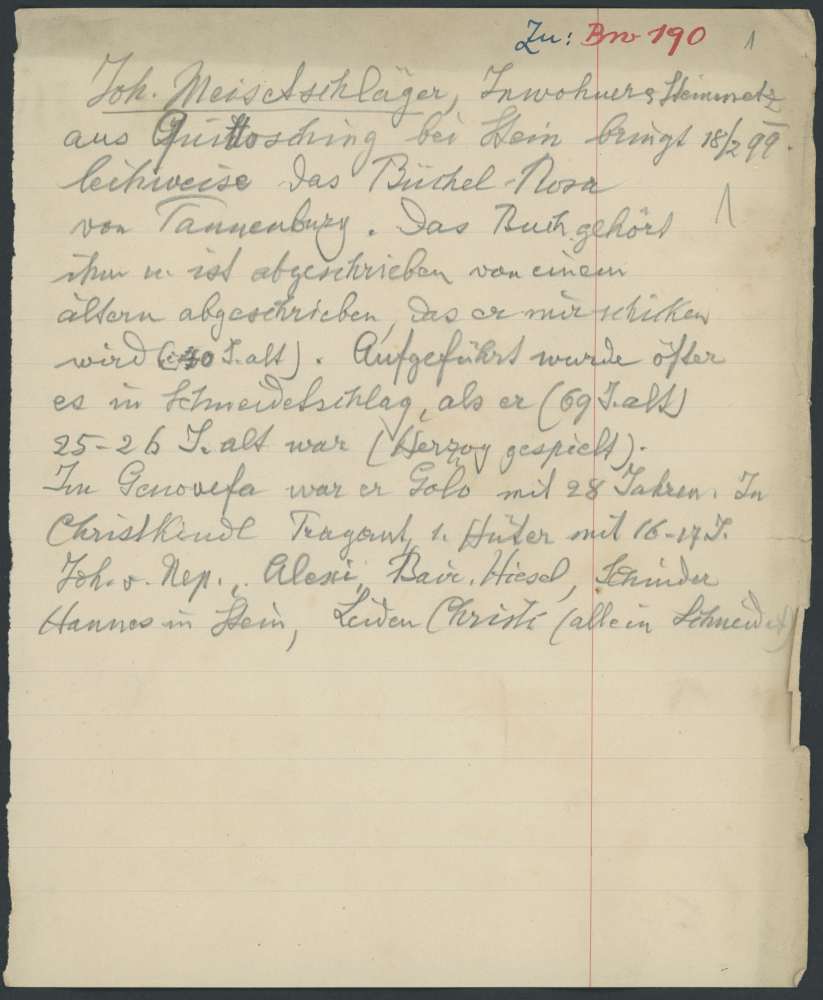 Zu: Bw 190
1
Joh. Meisetschläger, Inwohner & Steinmetz
aus Quittosching bei Stein bringt 18/2 99.
leihweise das Büchel Rosa
von Tannenburg. Das Buch gehört
1
ihm u. ist abgeschrieben von einem
ältern abgeschrieben, das er mir schicken
wird (40 J. alt). Aufgeführt wurde öfter
es in Schneidetschlag, als er (69 J. alt)
25-26 J. alt war (Herzog gespielt).
Im Genovefa war er Golo mit 28 Jahren. In
Christkindl Tragant, 1. Hüter mit 16-17 J.
Joh. v. Nep., Alexi, Bair. Hiesel, Schinder
Hannes in Stein, Leiden Christi (alle in Schneidet)